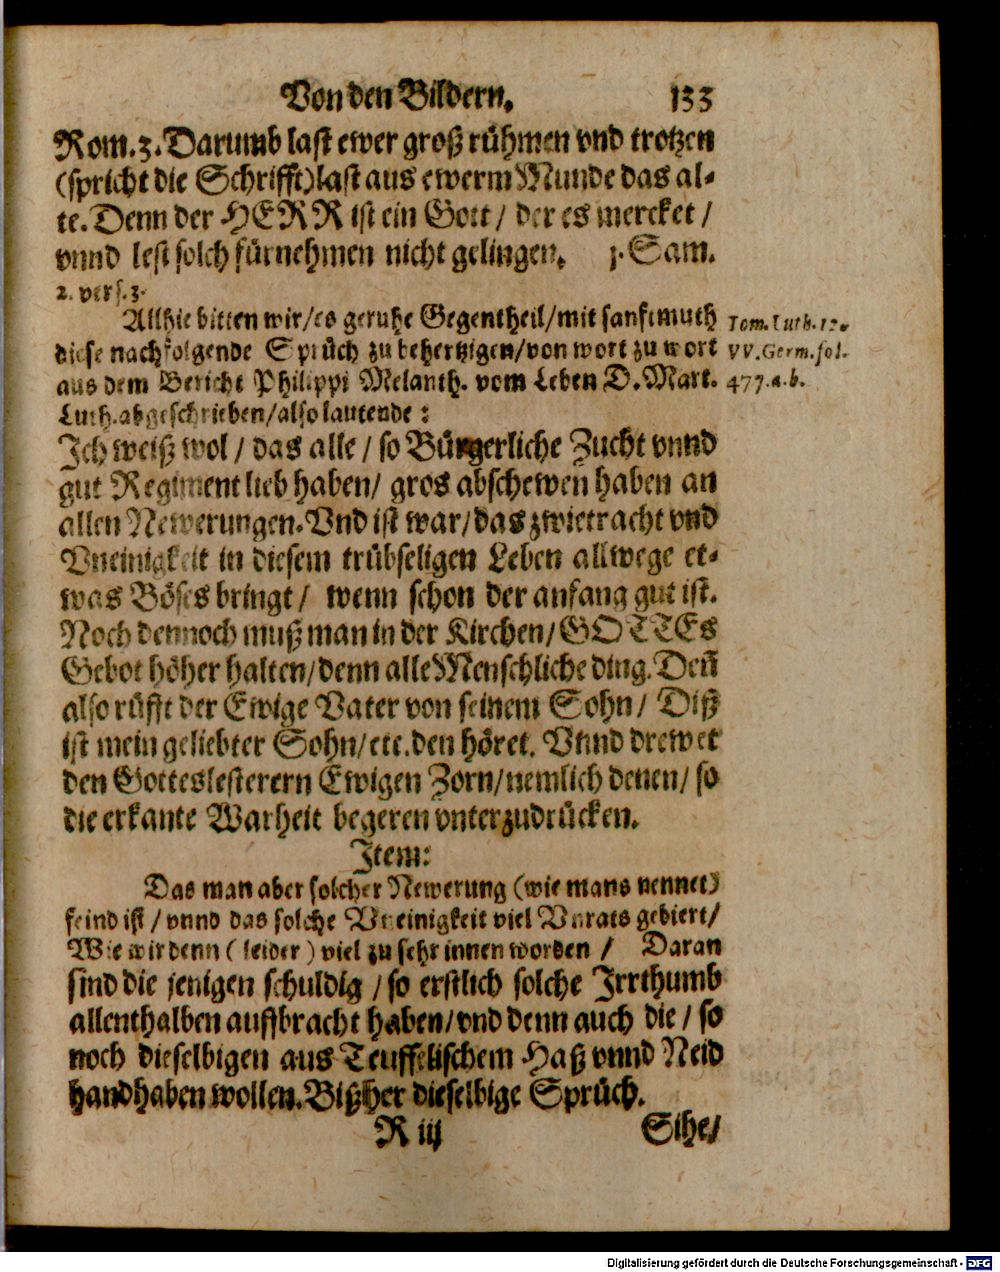 Von den Bildern. 133
Rom. 3. Darumb last ewer groß rühmen vnd trotzen
(spricht die Schrifft) last aus ewerm Munde das al-
te. Denn der HERR ist ein Gott / der es mercket /
vnnd lest solch fürnehmen nicht gelingen. 1. Sam.
2. vers. 3.
Allhie bitten wir / es geruhe Gegentheil / mit sanfftmuth
diese nachfolgende Sprüch zu behertzigen / von wort zu wort
aus dem Bericht Philippi Melanth. vom Leben D. Mart.
Luth. abgeschrieben / also lautende :
Tom. Luth. 12.
VV. Germ. fol.
477. a. b.
Ich weiß wol / das alle / so Bürgerliche Zucht vnnd
gut Regiment lieb haben / gros abschewen haben an
allen Newerungen. Vnd ist war / das zwietracht vnd
Vneinigkeit in diesem trübseligen Leben allwege et-
was Böses bringt / wenn schon der anfang gut ist.
Noch dennoch muß man in der Kirchen / GOTTEs
Gebot höher halten / denn alle Menschliche ding. Deñ
also rüfft der Ewige Vater von seinem Sohn / Diß
ist mein geliebter Sohn / etc. den höret. Vnnd drewet
den Gotteslesterern Ewigen Zorn / nemlich denen / so
die erkante Warheit begeren vnterzudrücken.
Item:
Das man aber solcher Newerung (wie mans nennet)
feind ist / vnnd das solche Vneinigkeit viel Vnrats gebiert /
Wie wir denn ( leider ) viel zu sehr innen worden / Daran
sind die jenigen schuldig / so erstlich solche Irrthumb
allenthalben auffbracht haben / vnd denn auch die / so
noch dieselbigen aus Teuffelischem Haß vnnd Neid
handhaben wollen. Bißher dieselbige Sprüch.
R iij Sihe /
Digitalisierung gefördert durch die Deutsche Forschungsgemeinschaft - DFG